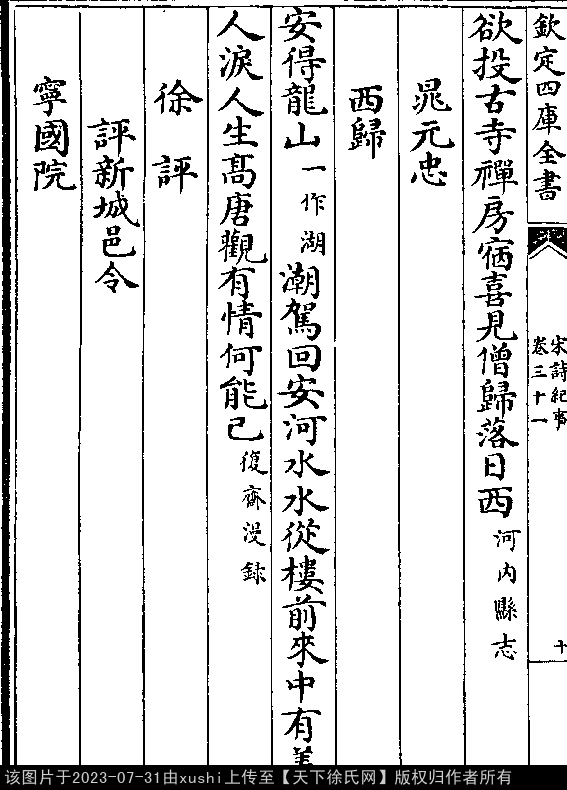 欽定四庫全書
宋詩紀事
卷三十一
十
欲投古寺禪房宿喜見僧歸落日西河内縣志
晁元忠
西歸
安得龍山一作湖潮駕回安河水水從樓前來中有美
人淚人生髙唐觀有情何能已復齋漫録
徐評
評新城邑令
寧國院
该图片于2023-07-31由xushi上传至【天下徐氏网】版权归作者所有